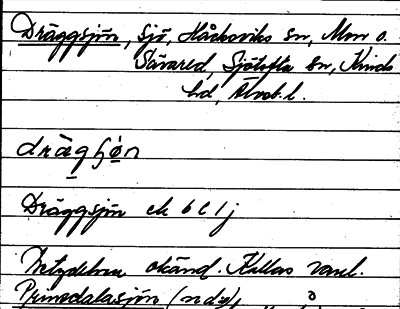 Dräggsjön, sjö, Håcksviks sn, Mon o.
Sävared, Sjötofta sn, Kinds
hd, Älvsb. l.
drägʃön
Dräggsjön ek 6 C 1 j
Betydelsen okänd. Kallas vanl.
Prinsedalasjön (ndy)